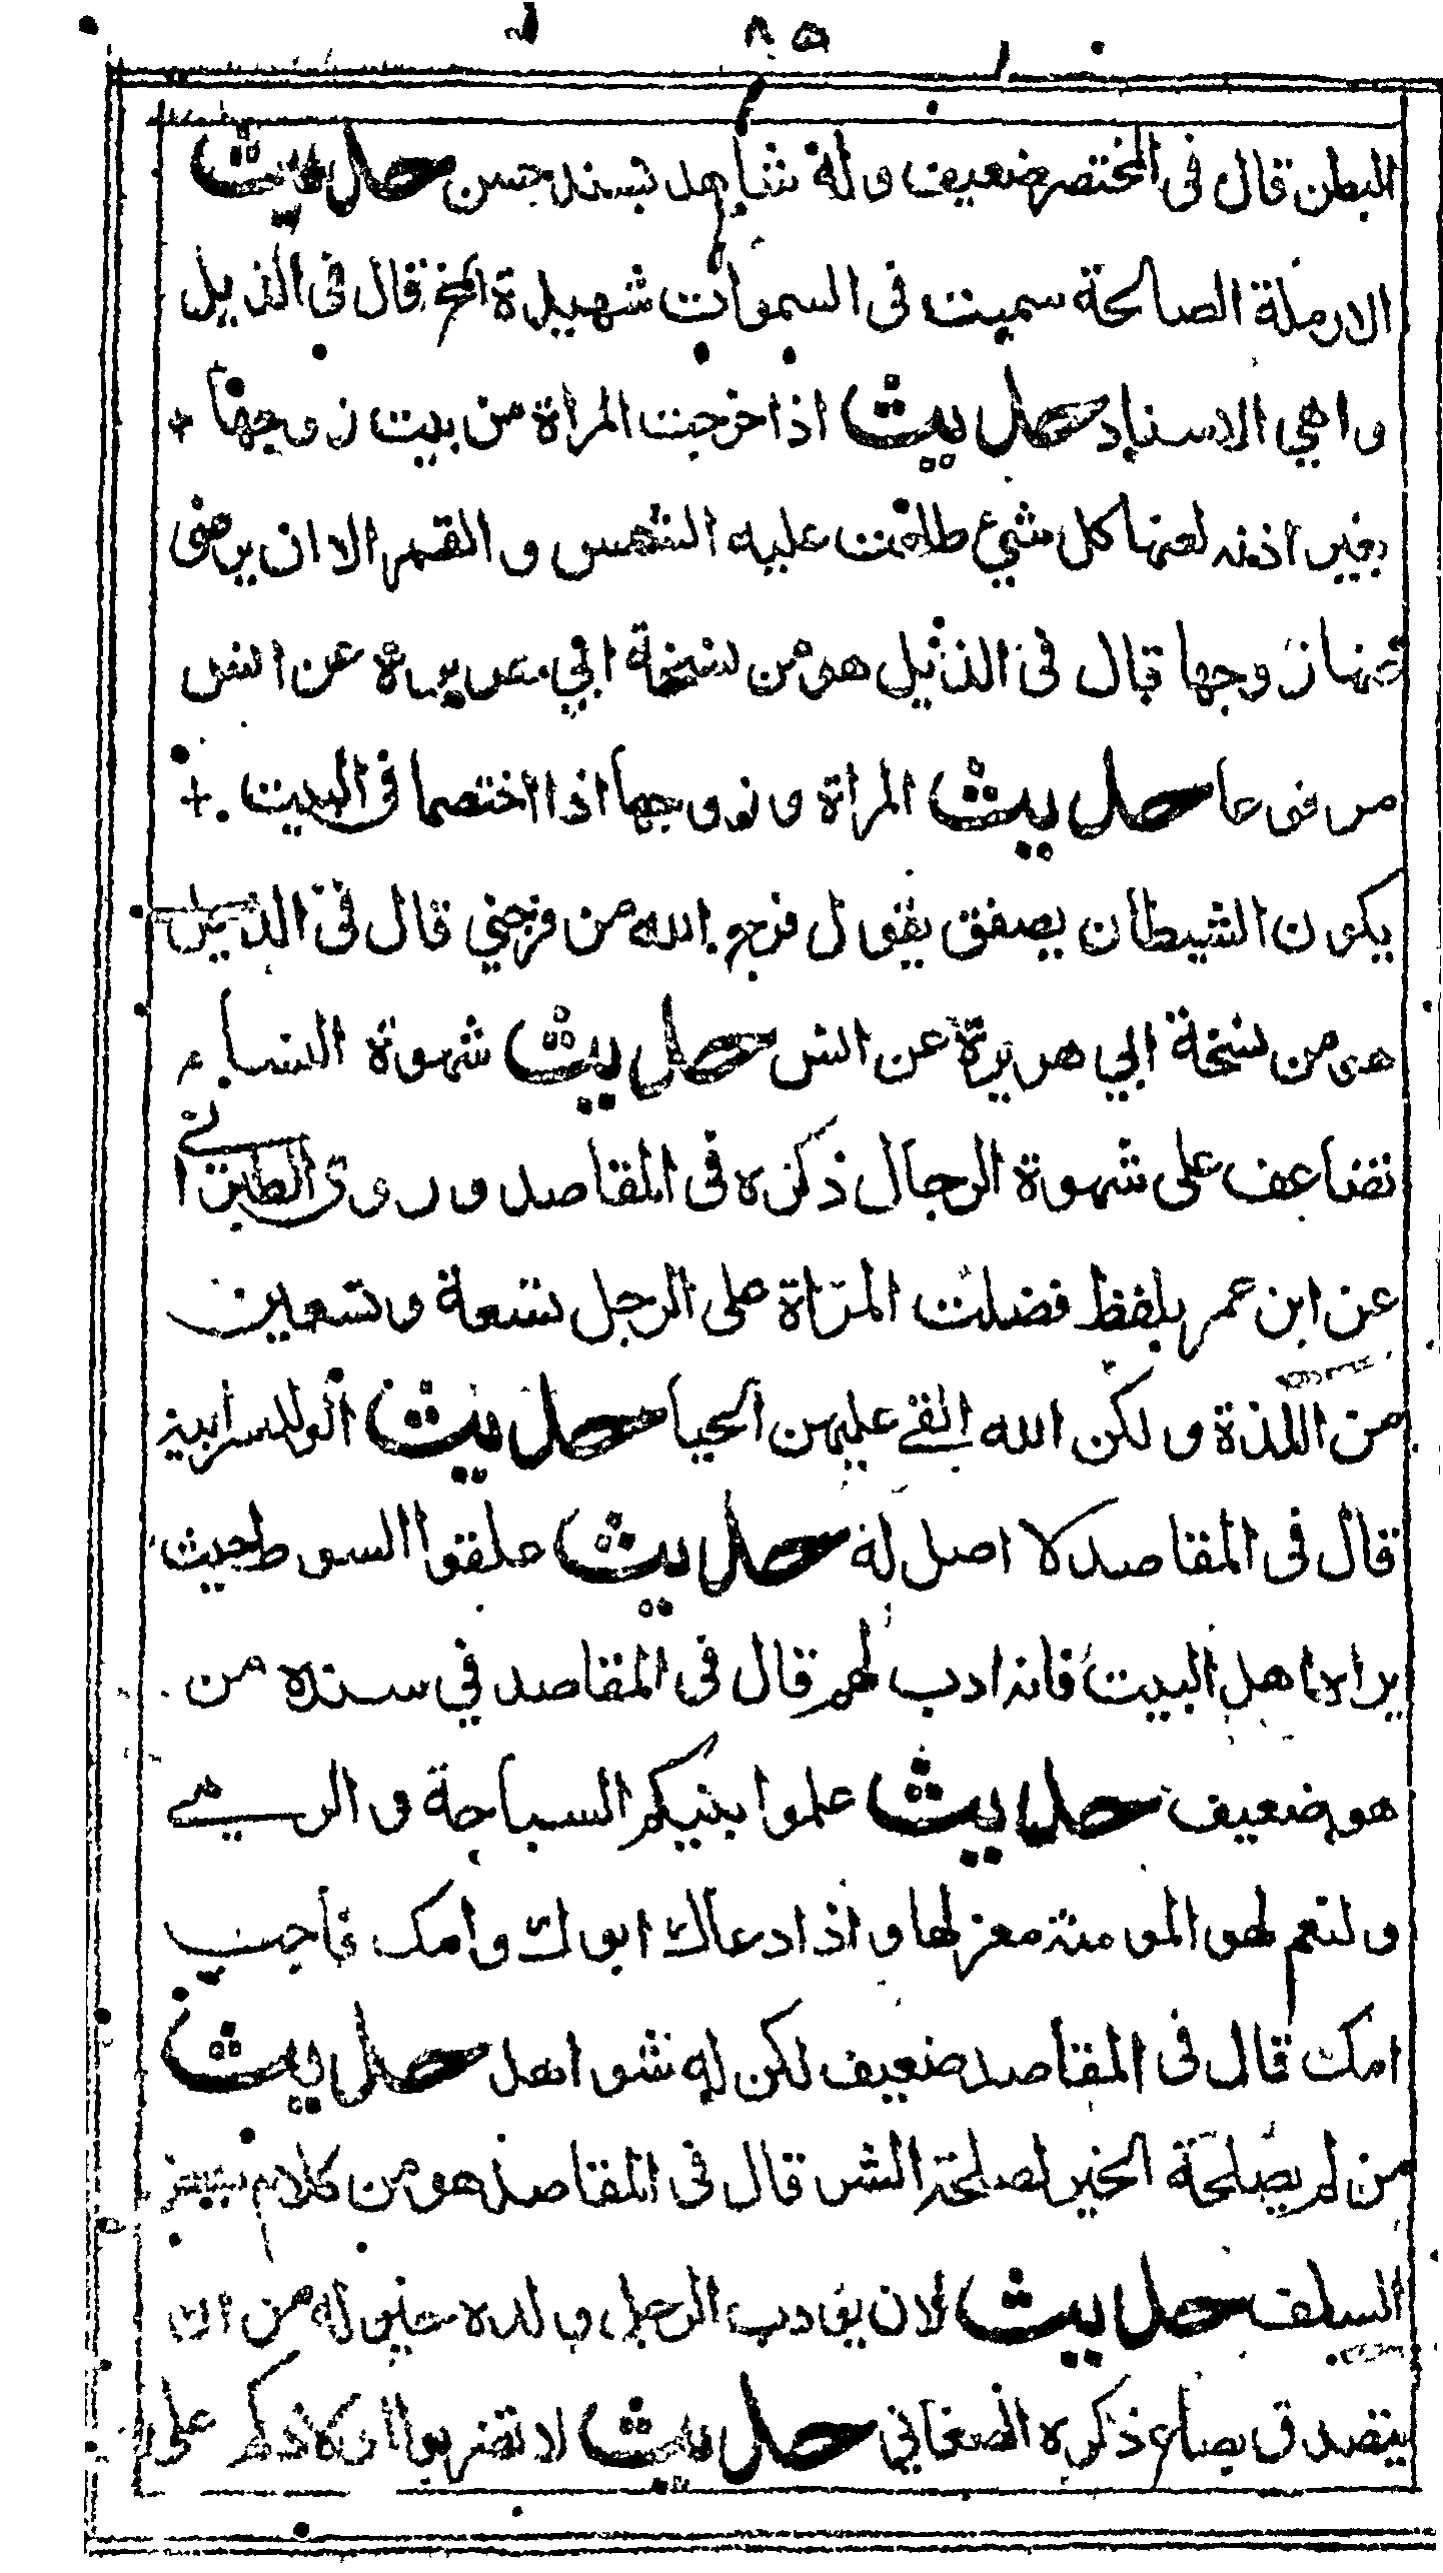 ٨٥
البطن قال في المختصر ضعيف وله شاهد بسند حسن حديث
الارملة الصالحة سميت في السموات شهيدة الخ قال في الذيل
واهي الاسناد حديث اذا خرجت المراة من بيت زوجها
بغير اذنه لعنها كل شيء طلعت عليه الشمس والقمر الا ان يرضى
عنها زوجها قال في الذيل هو من نسخة ابي هريرة عن انس
مرفوعا حديث المراة وزوجها اذا اختصما في البيت
يكون الشيطان يصفق يقول فرح الله من فرحني قال في الذيل
هو من نسخة ابي هريرة عن انس حديث شهوة النساء
تضاعف على شهوة الرجال ذكره في المقاصد وروى الطبراني
عن ابن عمر بلفظ فضلت المراة على الرجل بتسعة وتسعين
من اللذة ولكن الله القي عليهن الحيا حديث الولد سر ابيه
قال في المقاصد لا اصل له حديث علقوا السوط حيث
يراه اهل البيت فانه ادب لهم قال في المقاصد في سنده من
هو ضعيف حديث علموا بنيكم السباحة والرمي
ولنعم لهو المومنة مغزلها واذا دعاك ابوك وامك فاجب
امك قال في المقاصد ضعيف لكن له شواهد حديث
من لم يصلحه الخير لصلحه الشر قال في المقاصد هو من كلام
السلف حديث لان يودب الرجل ولده خير له من ان
يتصدق بصاع ذكره الصغاني حديث لا تضربوا اولادكم على